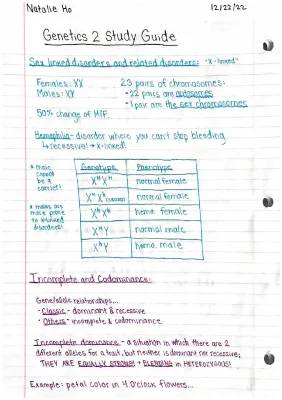 Natalie Ho 12/22/22
Genetics 2 Study Guide
Sex linked disorders and related disorders: "X-linked"
Females: XX 23 pairs of chromosomes:
Males: XY - 22 pairs are autosomes
- 1 pair are the sex chromosomes
50% change of M/F.
Hemophilia- disorder where you can't stop bleeding
→ recessive! → X-linked!
* male cannot be a carrier!
* males are more prone to X-linked disorders!
Genotype Phenotype
XᴴXᴴ normal female
XᴴXʰ normal female
XʰXʰ hemo. female
XᴴY normal male
XʰY hemo. male
Incomplete and Codominance:
Gene/allele relationships...
- Classic - dominant & recessive
- Others - incomplete & codominance.
Incomplete dominance - a situation in which there are 2
different alleles for a trait, but neither is dominant nor recessive;
THEY ARE EQUALLY STRONG! + BLENDING in HETEROZYGOUS!
Example: petal color in 4 O'clock flowers...